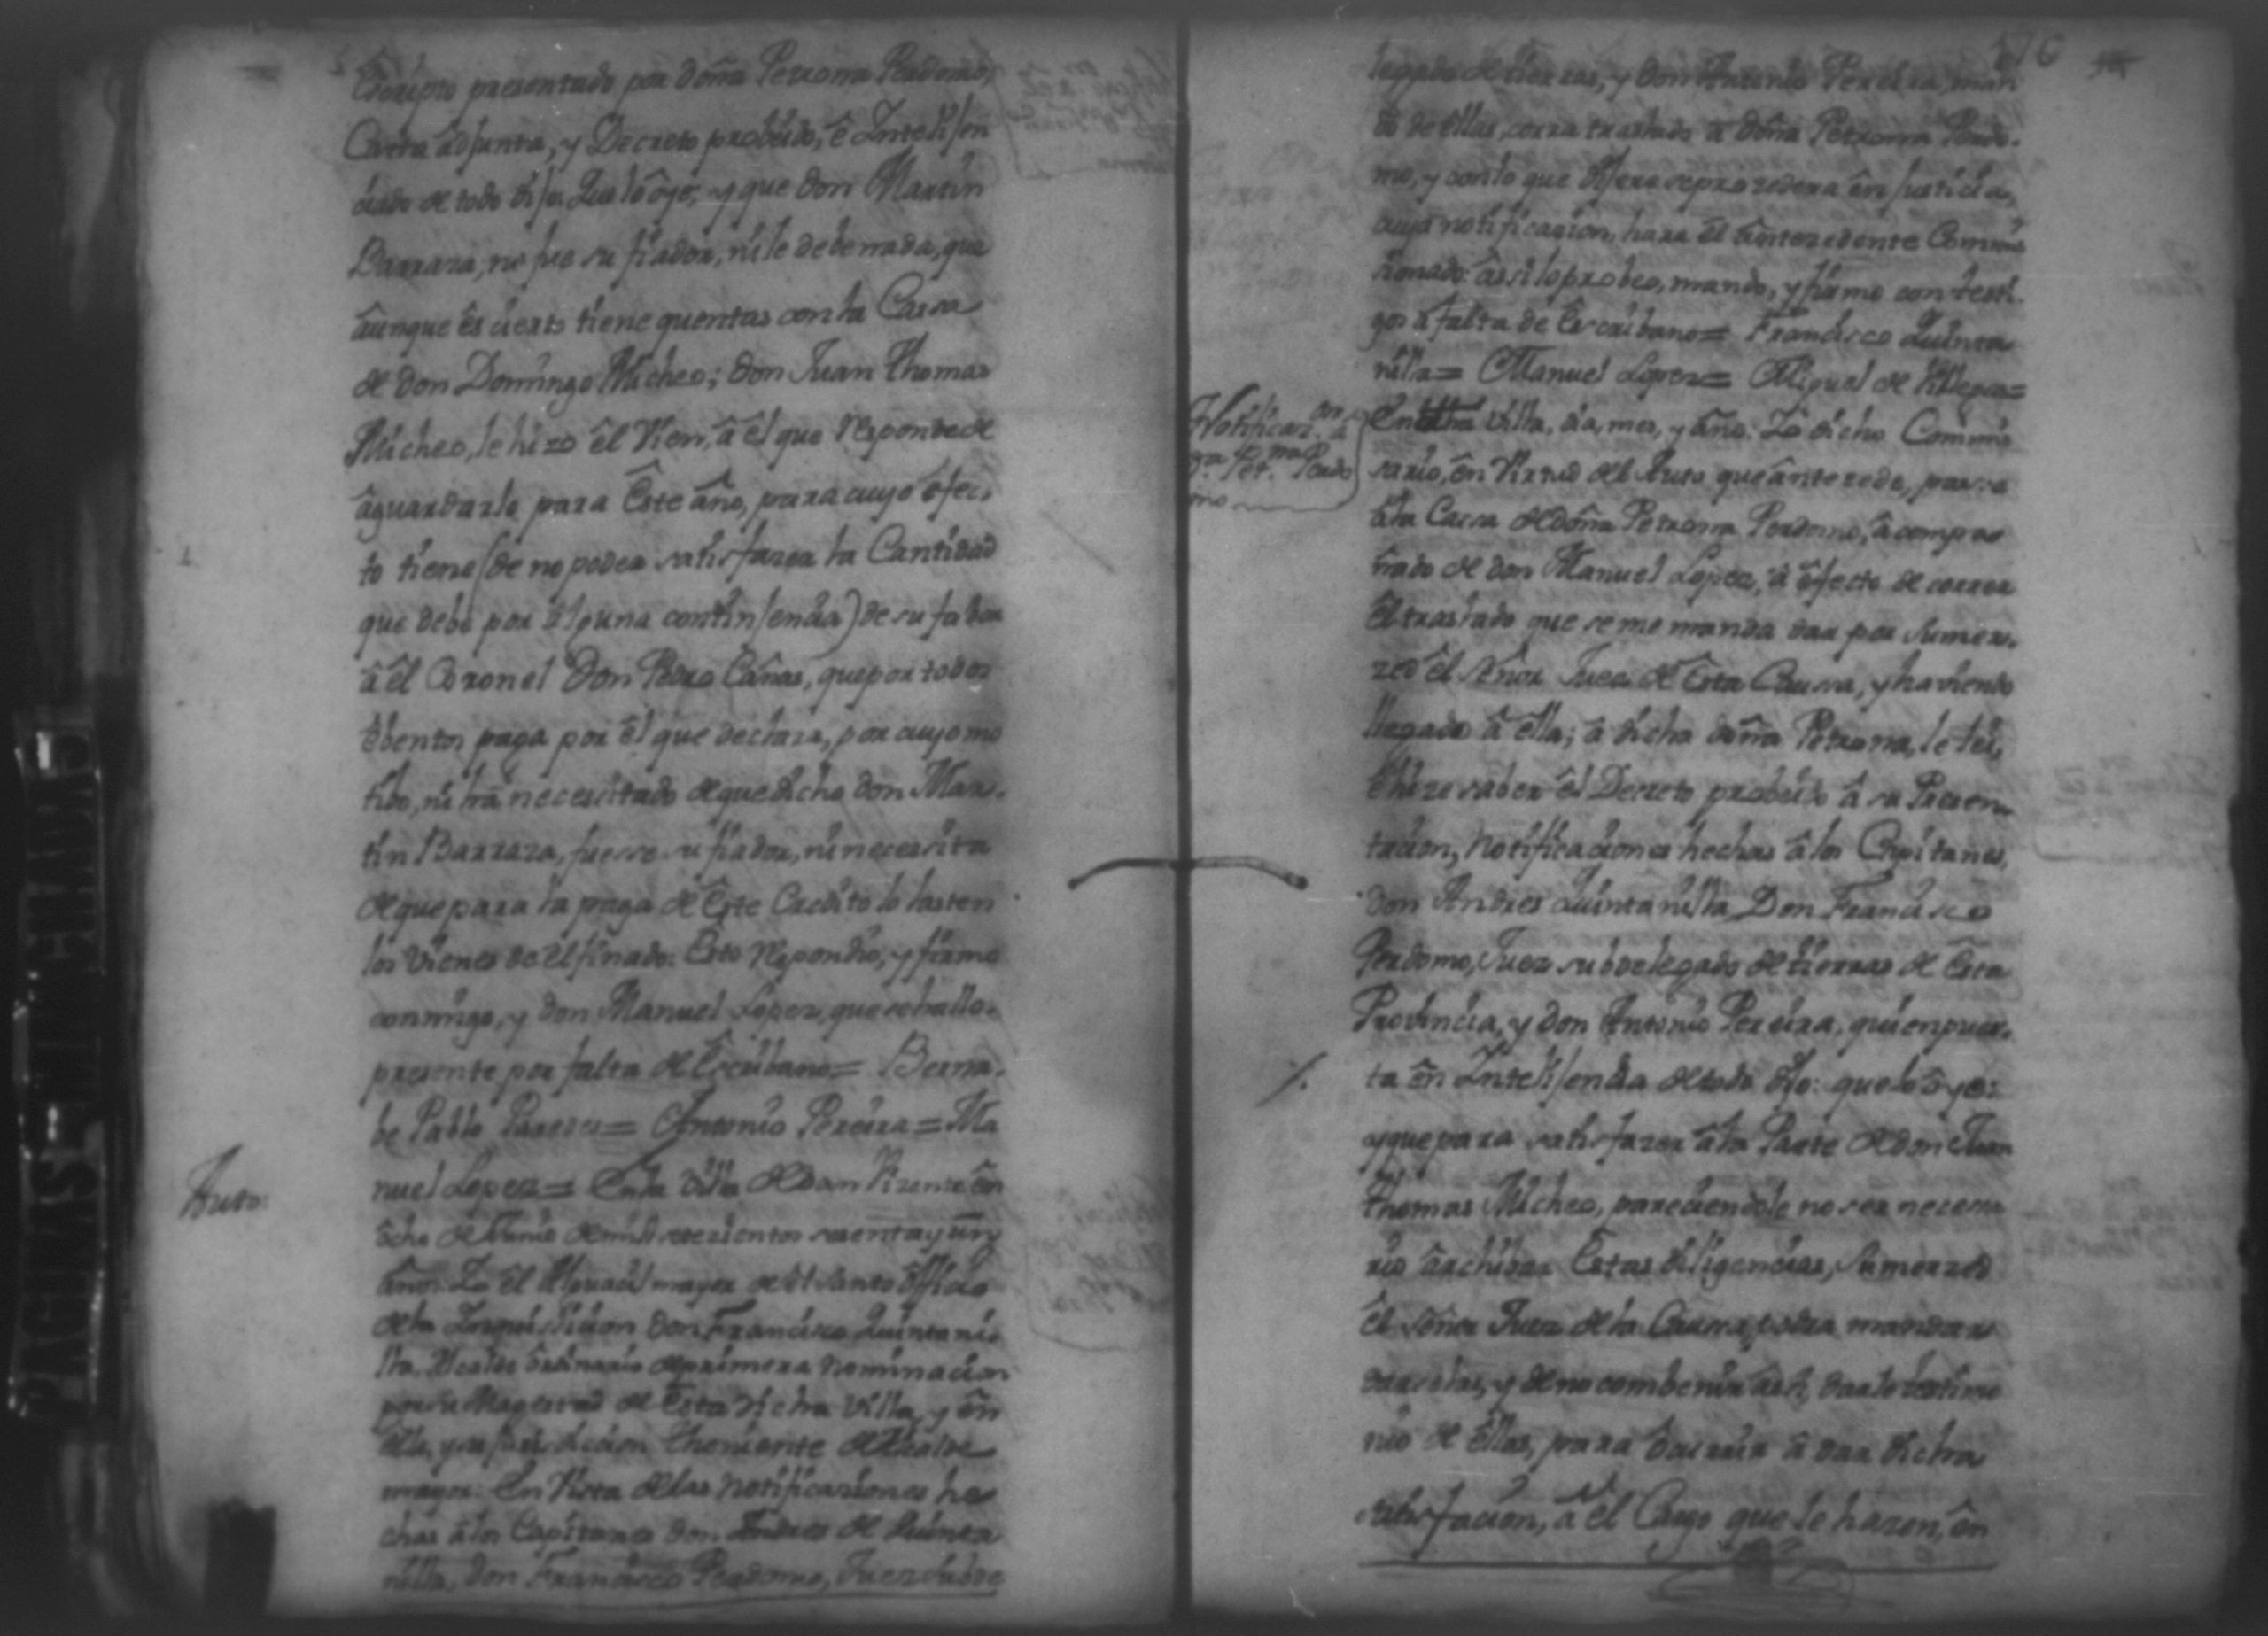 Escripto presentado por doña Petrona Perdomo,
Carta adjunta, y Decreto probeido, é Inteligen
ciado de todo dijo: Que lo oye, y que don Martin
Barraza, no fue su fiador, ni le debe nada, que
aunque es cierto tiene quentas con la Cassa
de don Domingo Micheo; don Juan Thomas
Micheo, le hizo êl Vien, â êl que Responde de
aguardarlo para Este año, para cuyo efec
to tiene (de no poder satisfazer la Cantidad
que debe por alguna continjencia) de su fabor
â êl Coronel Don Pedro Cañas, que por todos
êbentos paga por êl que declara, por cuyo mo
tibo, ni há necesitado de que dicho don Mar
tin Barraza, fuesse su fiador, ni necessita
de que para la paga de Este Credito lo lasten
los Vienes de el finado. Esto Respondio, y firmo
conmigo, y don Manuel Lopez, que se hallo
presente por falta de Escribano= Berna
be Pablo Paredes= Antonio Pereira= Ma
nuel Lopez= En la Villa de San Vizente ên
Auto:
ocho de Junio de mil setezientos sesenta y un
año. Yo êl Alguacil mayor de el Santo Officio
de la Inquisicion don Francisco Quintani
lla, Alcalde ordinario de primera nominacion
por su Magestad de Esta dicha Villa, y ên
ella, y su jurisdicion theniente de Alcalde
mayor: En Vista de las notificaziones he
chas â los Capitanes don Andres de Quinta
nilla, don Francisco Perdomo, Juez Subde
176
legado de tierras, y don Antonio Pereira, man
do de ellas, corra traslado â doña Petrona Perdo
mo, y con lo que dijere se prozedera ên justicia,
cuya notificazion, hara êl antezedente Commi
sionado: assi lo probeo, mando, y firmo con testi
gos â falta de Escribano= Francisco Quinta
nilla= Manuel Lopez= Miguel de Villegas=
Notificazon â
Da Petna Perdo
mo
En dicha Villa, dia, mes, y año: Yo dicho Commi
sario, ên Virtud del Auto que ântezede, passe
â la Cassa de doña Petrona Perdomo, âcompa
ñado de don Manuel Lopez, â efecto de correr
êl traslado que se me manda dar por Sumer
zed êl Señor Juez de Esta Caussa, y haviendo
llegado â ella; â dicha doña Petrona, le lei,
ê hize saber êl Decreto probeido â su Presen
tacion, notificaciones hechas â los Capitanes,
don Andres Quintanilla Don Francisco
Perdomo, Juez subdelegado de tierras de Esta
Provincia, y don Antonio Pereira, quien pues
ta ên Intelijencia de todo dijo: que lo oye:
y que para satisfazer â la Parte de don Juan
Thomas Micheo, pareciendole no ser necesa
rio archibar Estas diligencias, Sumerzed
êl Señor Juez de la Caussa, podra mandar
darselas, y de no combenir assi, darle testimo
nio de Ellas, para ôcurrir â dar dicha
satisfacion, â êl Cargo que le hazen, ên